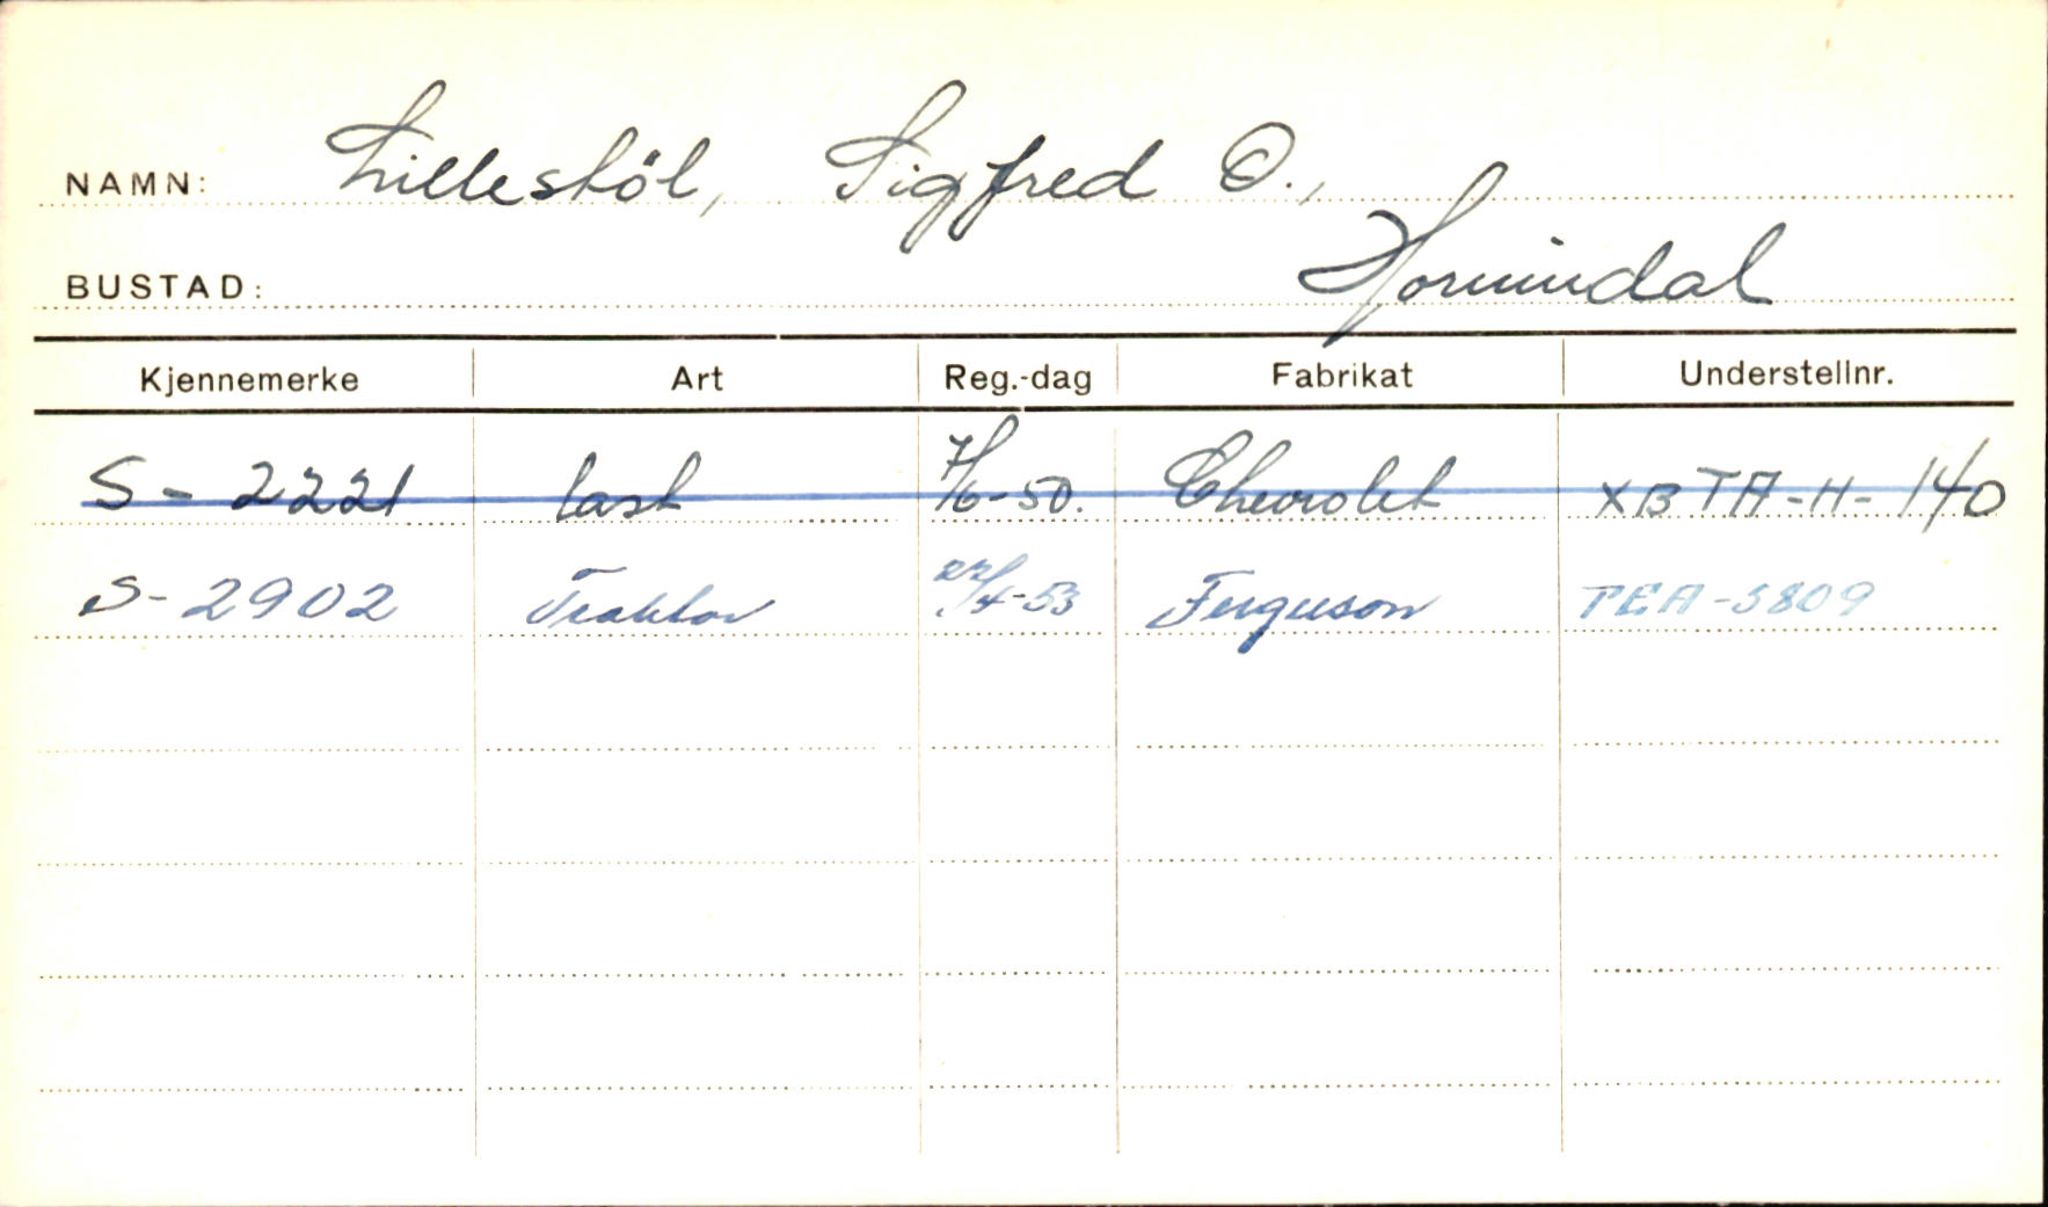 NAMN: Lillestöl, Sigfred O.,
BUSTAD: Hornindal
Kjennemerke Art Reg.-dag Fabrikat Understellnr.
S - 2221 last 7/6-50. Chevrolet XB TA-H-140
S - 2902 Traktor 22/4-53 Ferguson TEA-5809